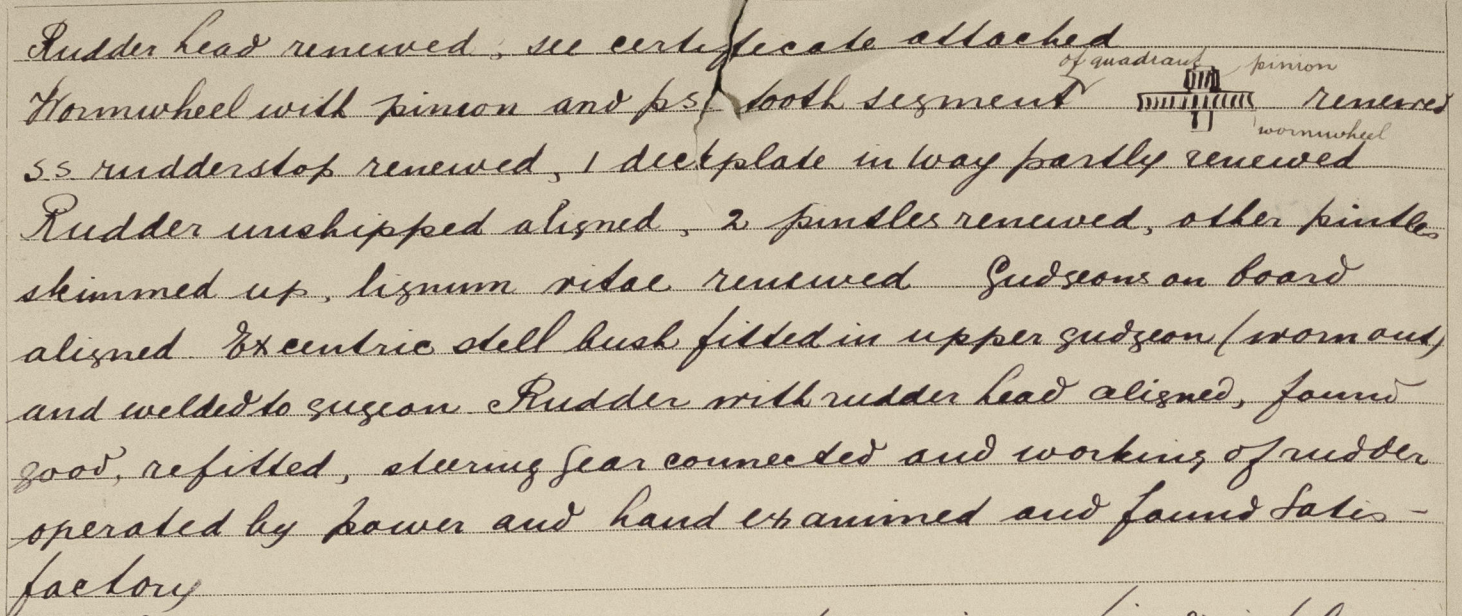 Rudder head renewed, see certificate attached
of quadrant pinion
Wormwheel with pinion and ps tooth segment renewed
wormwheel
ss rudderstop renewed, 1 deckplate in way partly renewed
Rudder unshipped aligned, 2 pintles renewed, other pintles
skimmed up, lignum vitae renewed Gudgeons on board
aligned Excentric stell bush fitted in upper gudgeon (worn out)
and welded to gugeon Rudder with rudder head aligned, found
good, refitted, steering gear connected and working of rudder
operated by power and hand examined and found Satis-
factory